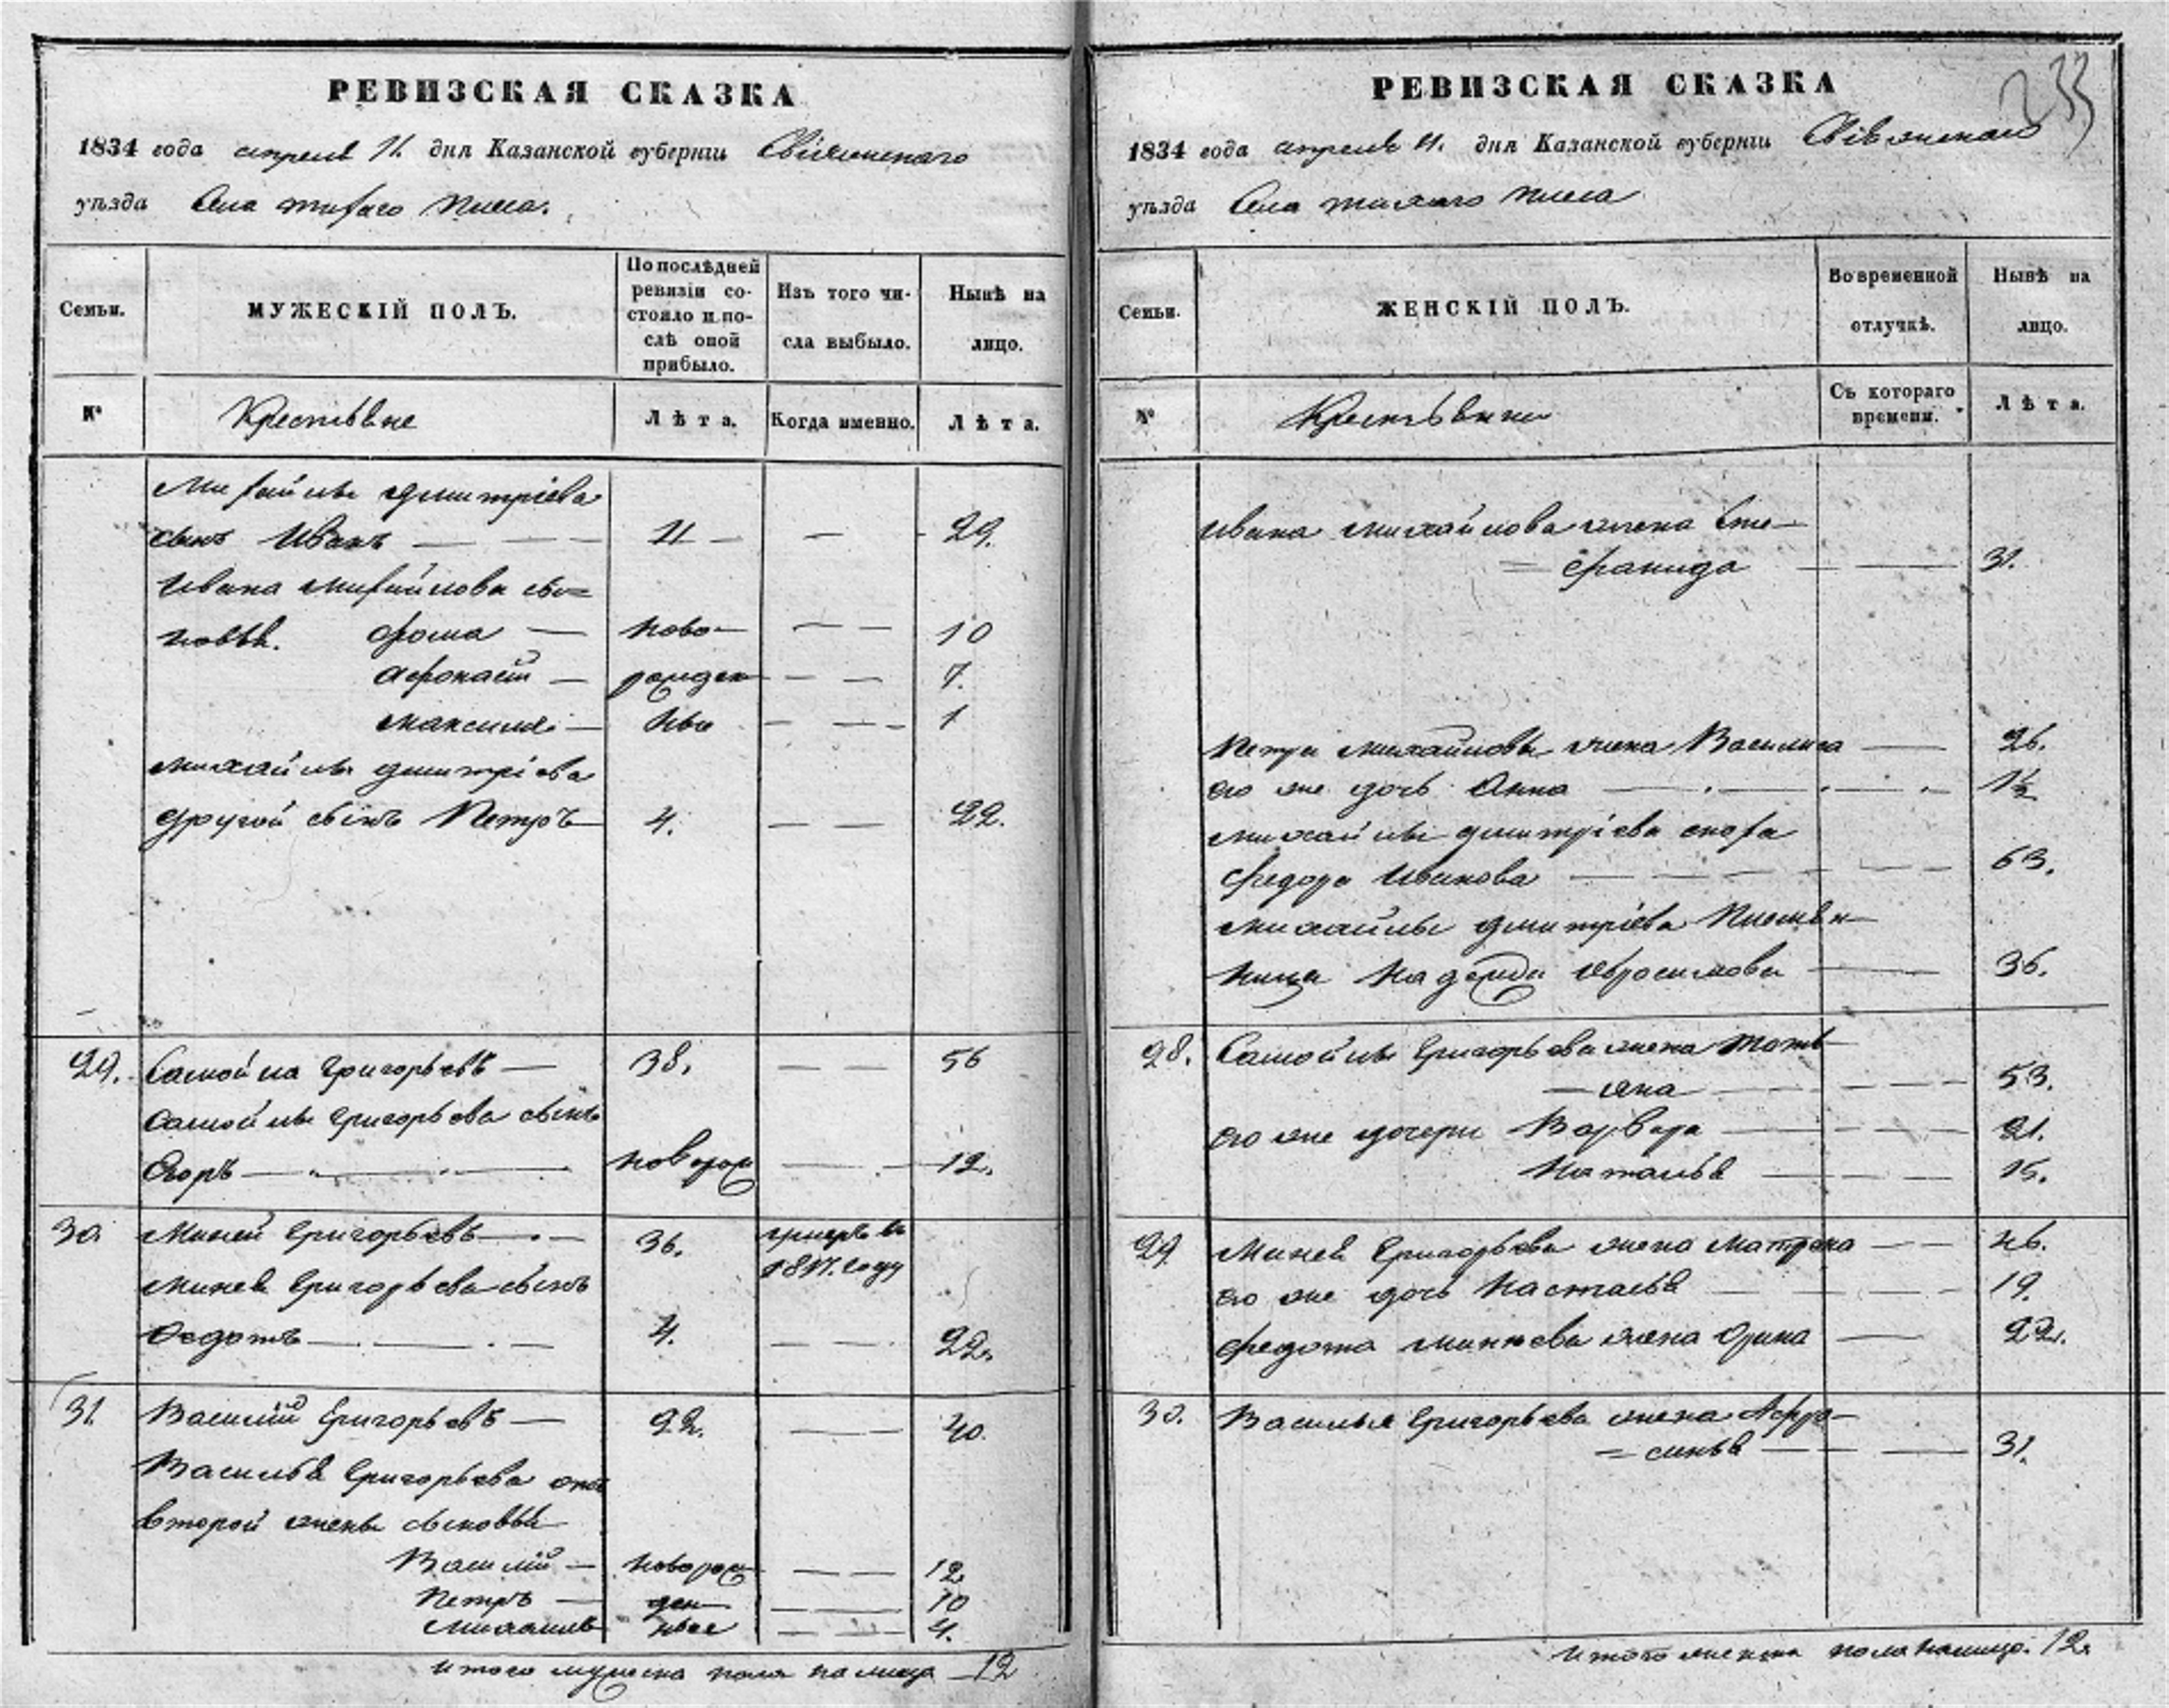 РЕВИЗСКАЯ СКАЗКА
1834 года апреля 11. дня Казанской губернiи Свiяжскаго
уѣзда Села тихаго Плеса.
Семьи.
МУЖЕСКIЙ ПОЛЪ.
По послѣдней ревизiи со-
стояло и по-
слѣ оной
прибыло.
Изъ того чи-
сла выбыло.
Нынѣ на
лицо.
№
Крестьяне
Лѣта.
Когда именно.
Лѣта.
Михайлы Дмитрiева
сынъ Иванъ — 11 — 29.
Ивана Михайлова сы=
новья. Фома — ново- — 10
Афонасiй — рожден — 7.
Максимъ — ныи — 1
Михайлы Дмитрiева
другой сынъ Петръ — 4. — 22.
29. Самойла Григорьевъ — 38. — 56
Самойлы Григорьева сынъ
Егоръ — новорож — 12.
30. Миней Григорьевъ — 36. умеръ въ
1817. году
Минея Григорьева сынъ
Федотъ — 4. — 22.
31. Василiй Григорьевъ — 22. — 40.
Василья Григорьева отъ
второй жены сыновья
Василiй — новорож — 12
Петръ — ден — 10
Михаилъ ные — 4.
Итого мужеска пола на лицо — 12
РЕВИЗСКАЯ СКАЗКА
233
1834 года апреля 11. дня Казанской губернiи Свiяжскаго
уѣзда Села тихаго Плеса
Семьи.
ЖЕНСКIЙ ПОЛЪ.
Во временной
отлучкѣ.
Нынѣ на
лицо.
№
Крестьянки
Съ котораго
времени.
Лѣта.
Ивана Михайлова жена Сте-
= фанида — 31.
Петра Михайлова жена Василиса — 26.
его же дочь Анна — 1½
Михайлы Дмитрiева сноха
Федора Иванова — 63.
Михайлы Дмитрiева Племян-
ница Надежда Абросимова — 36.
28. Самойлы Григорьева жена Тать-
— яна — 53.
его же дочери Варвара — 21.
Наталья — 15.
29. Минея Григорьева жена Матрена — 46.
его же дочь Настасья — 19.
Федота Минеева жена Орина — 22.
30. Василья Григорьева жена Афро-
= синья — 31.
Итого женска пола налицо. 12.